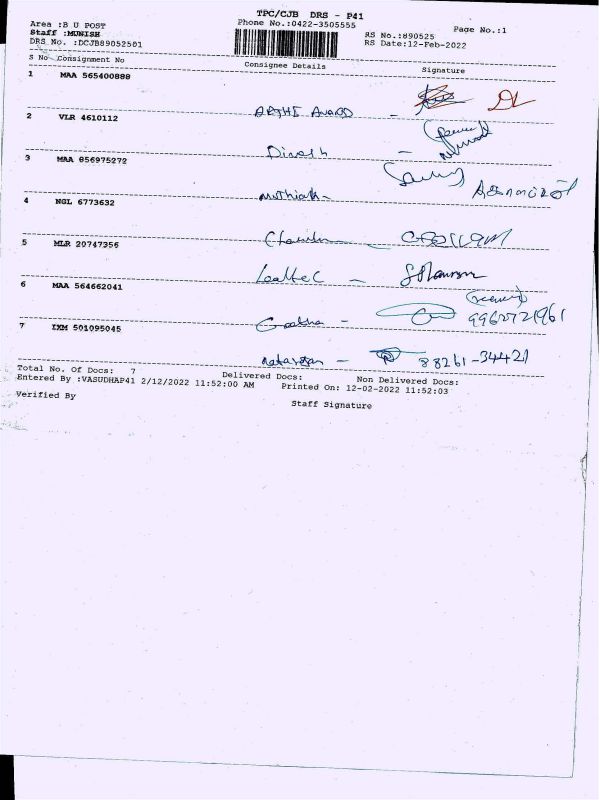 TPC/CJB DRS - P41
Area :B U POST Phone No.:0422-3505555 Page No.:1
Staff :MUNISH RS No.:890525
DRS No. :DCJB89052501 RS Date:12-Feb-2022
S No Consignment No Consignee Details Signature
1 MAA 565400888
ARTHI ANAND -
2 VLR 4610112
Dinesh -
3 MAA 856975272
Muthiah -
4 NGL 6773632
5 MLR 20747356
6 MAA 564662041
Geetha - 9962721961
7 IXM 501095045
Natarajan - 88261-34421
Total No. Of Docs: 7 Delivered Docs: Non Delivered Docs:
Entered By :VASUDHAP41 2/12/2022 11:52:00 AM Printed On: 12-02-2022 11:52:03
Verified By Staff Signature